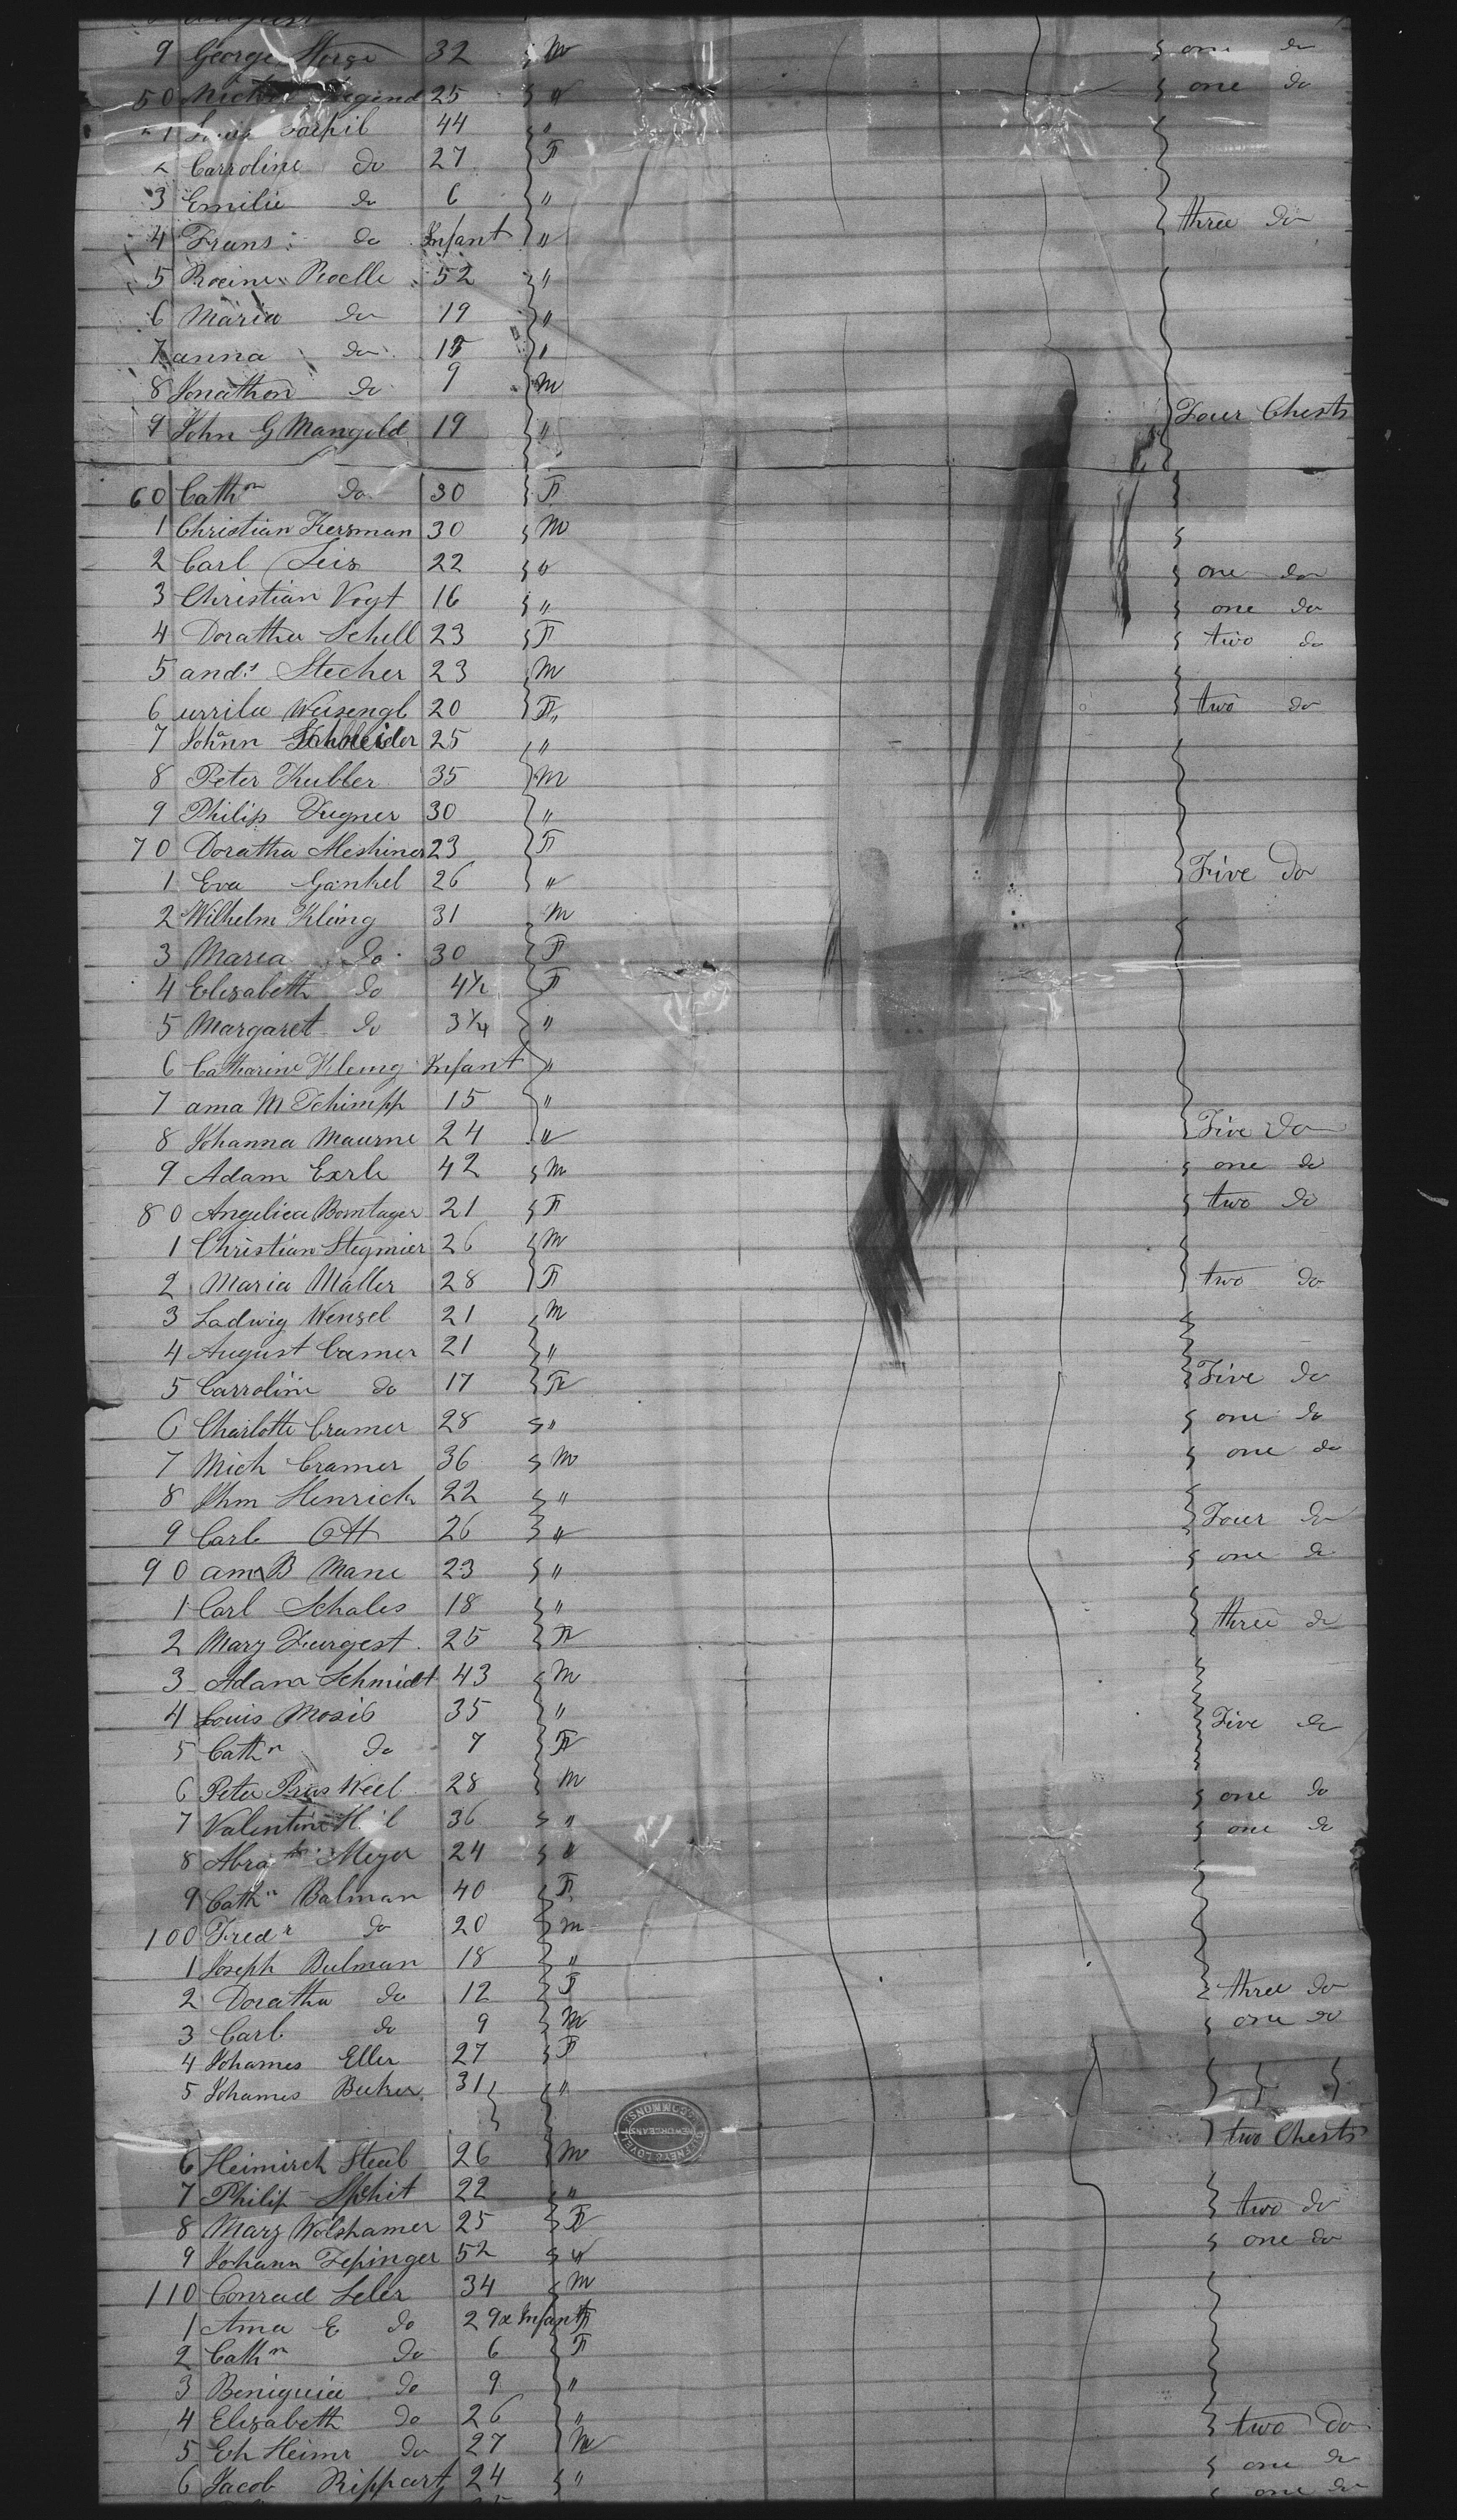 9 George 32 M one do
50 25 " one do
1 Louis 44 "
2 Carroline do 27 F
3 Emilie do 6 "
4 Frans: do Infant " three do
5 Rosine Roelle 52 "
6 Maria do 19 "
7 anna do 15 "
8 Jonathon do 9 M
9 John G Mangold 19 " Four Chests
60 Cathn do 30 F
1 Christian Kersman 30 M
2 Carl Leis 22 " one do
3 Christian Vogt 16 " one do
4 Doratha Schell 23 F two do
5 andr Stecher 23 M
6 urrila Weisengl 20 F two do
7 Johann Schneider 25 "
8 Peter Kubler 35 M
9 Philip Fugner 30 "
70 Doratha Meshiner 23 F
1 Eva Gankel 26 " Five Do
2 Wilhelm Kling 31 M
3 Maria Do 30 F
4 Elizabeth do 4½ F
5 Margaret do 3¼ "
6 Catharine Kleing Infant "
7 ama M Schimpp 15 "
8 Johanna Maurne 24 " Five Do
9 Adam Exrle 42 M one do
80 Angelica Borntager 21 F two do
1 Christian Stegmier 26 M
2 Maria Maller 28 F two do
3 Ladwig Wensel 21 M
4 August Cramer 21 "
5 Carroline do 17 F Five do
6 Charlotte Cramer 28 " one do
7 Mich Cramer 36 M one do
8 Jhm Henrich 22 "
9 Carl Ott 26 " Four do
90 ama B Mane 23 " one do
1 Carl Schales 18 "
2 Mary Furgest 25 F three do
3 Adam Schmidt 43 M
4 Louis Mosib 35 " Five do
5 Cathn do 7 F
6 Peter Prus Weel 28 M one do
7 Valentine 36 " one do
8 Abram Meyer 24 "
9 Cathn Balman 40 F
100 Fredr do 20 M
1 Joseph Bulman 18 "
2 Doratha do 12 F three do
3 Carl do 9 M one do
4 Johames Eller 27 F
5 Johames Beeker 31 "
two Chests
6 Heimirch Steub 26 M
7 Philip Spehit 22 " two do
8 Mary Wolshamer 25 F one do
9 Johann Fepinger 52 "
110 Conrad Seler 34 M
1 Ama E do 29 & Infant F
2 Cathn do 6 F
3 Beniguia do 9 "
4 Elizabeth do 26 " two do
5 Eh Heimr do 27 M one do
6 Jacob Rippart 24 " one do